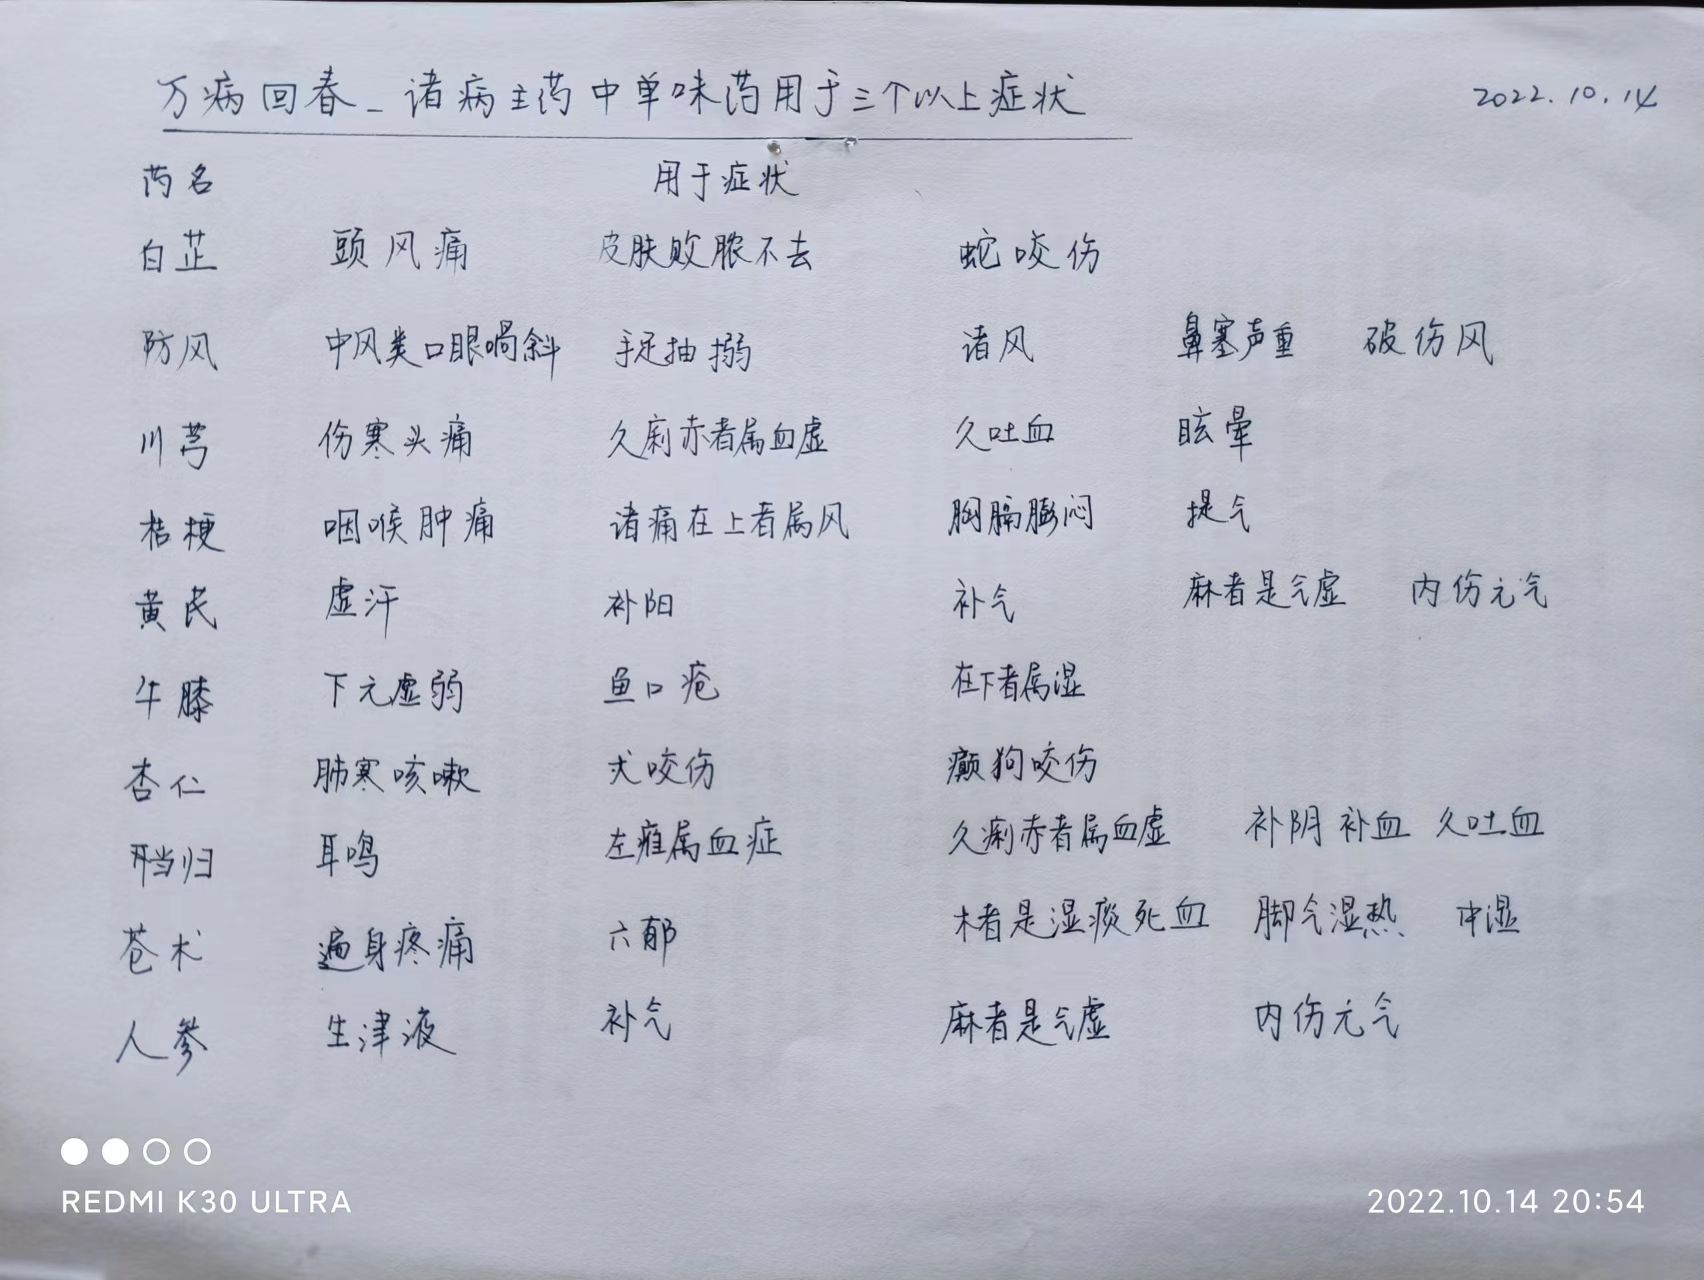 万病回春_诸病主药中单味药用于三个以上症状 2022.10.14
药名 用于症状
白芷 頭风痛 皮肤败脓不去 蛇咬伤
防风 中风类口眼喎斜 手足抽搦 诸风 鼻塞声重 破伤风
川芎 伤寒头痛 久痢赤者属血虚 久吐血 眩晕
桔梗 咽喉肿痛 诸痛在上者属风 胸膈膨闷 提气
黄芪 虚汗 补阳 补气 麻者是气虚 内伤元气
牛膝 下元虚弱 鱼口疮 在下者属湿
杏仁 肺寒咳嗽 犬咬伤 癫狗咬伤
当归 耳鸣 左瘫属血症 久痢赤者属血虚 补阴补血 久吐血
苍术 遍身疼痛 六郁 木者是湿痰死血 脚气湿热 中湿
人参 生津液 补气 麻者是气虚 内伤元气
REDMI K30 ULTRA 2022.10.14 20:54